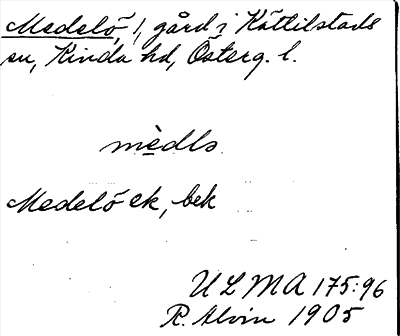 Medelö, 1, gård i Kättilstads
sn, Kinda hd, Österg. l.
mèdlə
Medelö ek, bek
ULMA 175:96
R. Alvin 1905